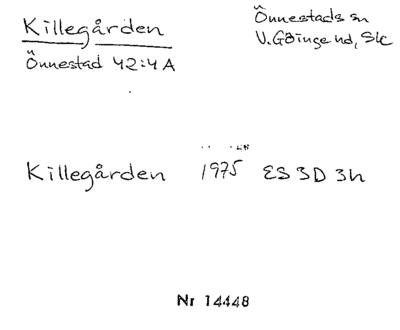 Killegården
Önnestads sn
Önnestad 42:4A
V.Göinge hd, Skc
Killegården 1975 ES 3D 3h
Nr 14448